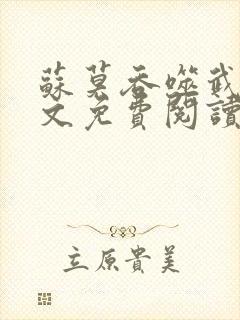 蘇莫吞噬武
文免費閱讀
立原貴美